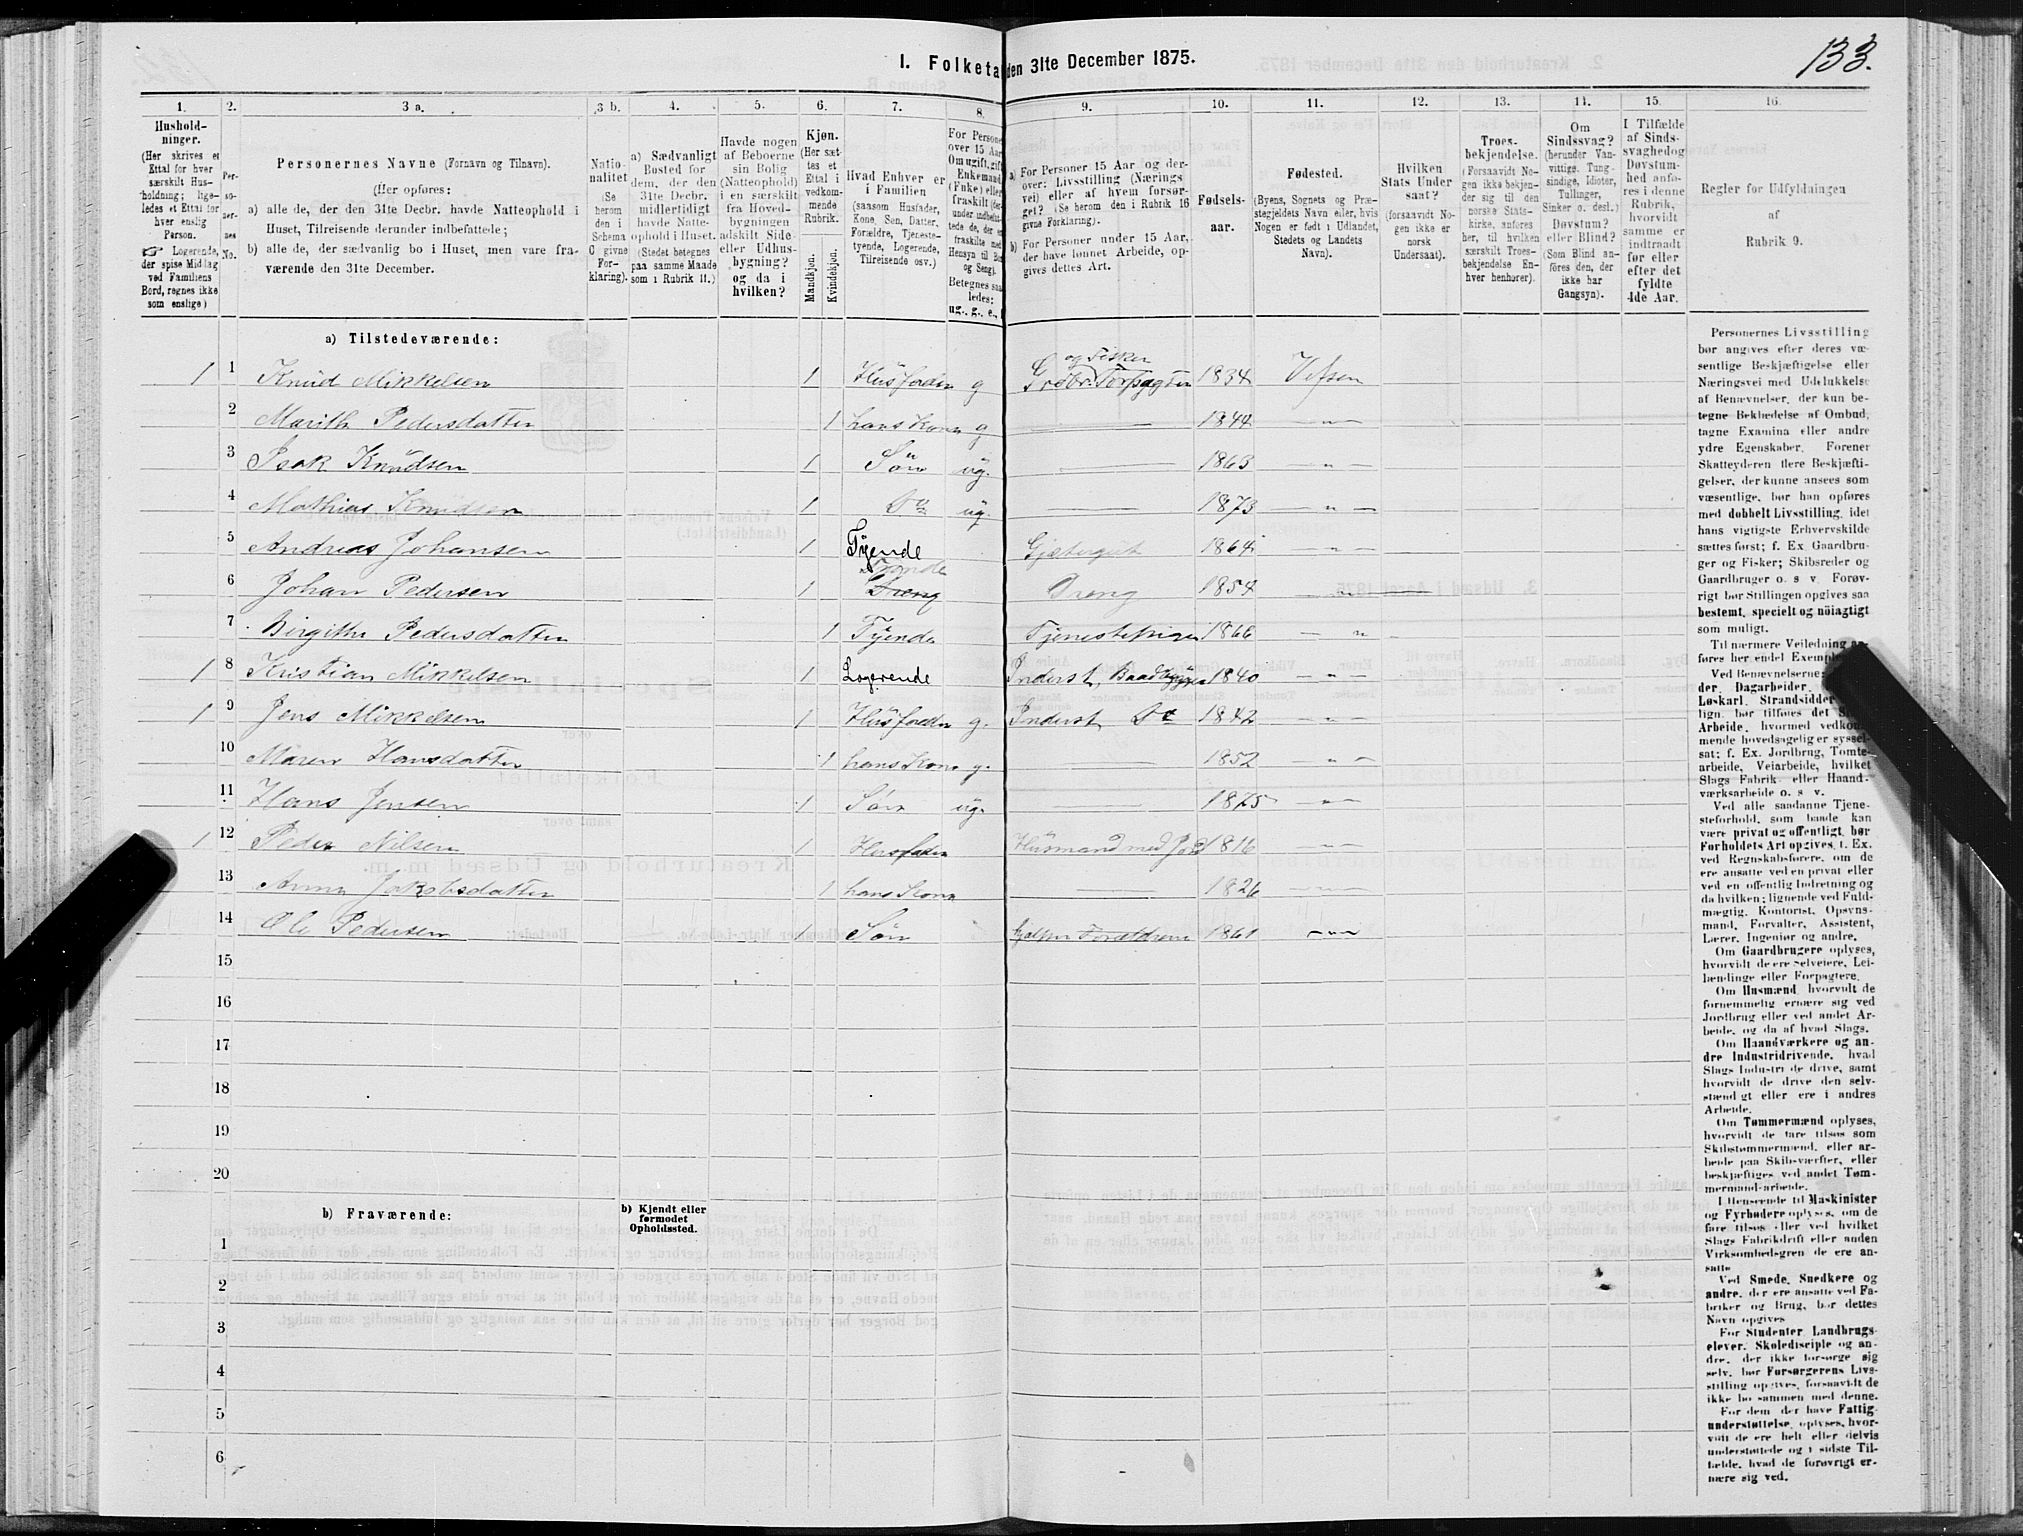 133.
I. Folketa den 31te December 1875.
1. 2. 3 a. 3 b. 4. 5. 6. 7. 8. 9. 10. 11. 12. 13. 14. 15. 16.
Husholdninger. (Her skrives et Ettal for hver særskilt Husholdning; ligeledes et Ettal for hver enslig Person. Logerende, der spise Middag ved Familiens Bord, regnes ikke som enslige)
Personernes No.
Personernes Navne (Fornavn og Tilnavn).
(Her opføres:
a) alle de, der den 31te Decbr. havde Natteophold i Huset, Tilreisende derunder indbefattede;
b) alle de, der sædvanlig bo i Huset, men vare fraværende den 31te December.
Nationalitet (Se herom den i Schema C givne Forklaring).
a) Sædvanligt Bosted for dem, der den 31te Decbr. midlertidigt havde Natteophold i Huset. (Stedet betegnes paa samme Maade som i Rubrik 11.)
Havde nogen af Beboerne sin Bolig (Natteophold) i en særskilt fra Hovedbygningen adskilt Side- eller Udhusbygning? og da i hvilken?
Kjøn. (Her sættes et Ettal i vedkommende Rubrik.
Mandkjøn. Kvindekjøn.
Hvad Enhver er i Familien (saasom Husfader, Kone, Søn, Datter, Forældre, Tjenestetyende, Logerende, Tilreisende osv.)
a) For Personer 15 Aar og derover: Livsstilling (Næringsvei) eller af hvem forsørget? (Se herom den i Rubrik 16 givne Forklaring).
b) For Personer under 15 Aar, der have lønnet Arbeide, opgives dettes Art.
Fødselsaar.
Fødested. (Byens, Sognets og Præstegjeldets Navn eller, hvis Nogen er født i Udlandet, Stedets og Landets Navn).
Hvilken Stats Undersaat? (forsaavidt Nogen ikke er norsk Undersaat).
Troesbekjendelse. (Forsaavidt Nogen ikke bekjender sig til den norske Statskirke, anføres her, til hvilken særskilt Troesbekjendelse Enhver henhører).
Om Sindssvag? (herunder Vanvittige, Tungsindige, Idioter, Tullinger, Sinker o. desl.) Døvstum? eller Blind? (Som Blind anføres den, der ikke har Gangsyn).
I Tilfælde af Sindssvaghed og Døvstumhed anføres i denne Rubrik, hvorvidt samme er indtraadt før eller efter det fyldte 4de Aar.
Regler for Udfyldningen af Rubrik 9.
a) Tilstedeværende:
1 1 Knud Mikkelsen 1 Husfader g Grdbr. og Fisker 1834 Vefsen
2 Marith Pedersdatter 1 hans Kone g 1844 — „ —
3 Isak Knudsen 1 Søn ug. 1863 — „ —
4 Mathias Knudsen 1 Do ug. 1873 — „ —
5 Andreas Johansen 1 Tyende Gjætergut 1864 — „ —
6 Johan Pedersen 1 Tyende Dreng Dreng 1854 — „ —
7 Birgithe Pedersdatter 1 Tyende Tjenestepige 1866 — „
1 8 Kristian Mikkelsen 1 Logerende Inderst, Baadbygger 1840 — „ —
1 9 Jens Mikkelsen 1 Husfader g. Inderst Do 1842 — „ —
10 Maren Hansdatter 1 hans Kone g. 1852 — „ —
11 Hans Jensen 1 Søn ug. 1875 — „ —
1 12 Peder Nilsen 1 Husfader Husmand med Jord 1816 — „ —
13 Anne Jakobsdatter 1 hans Kone 1826 — „ —
14 Ole Pedersen 1 Søn hjælper Forældrene 1861 — „ —
15
16
17
18
19
20
b) Fraværende: b) Kjendt eller formodet Opholdssted.
1
2
3
4
5
6
Personernes Livsstilling
bør angives efter deres væ-
sentlige Beskjæftigelse eller
Næringsvei med Udelukkelse
af Benævnelser, der kun be-
tegne Beklædelse af Ombud,
tagne Examina eller andre
ydre Egenskaber. Forener
Skatteyderen flere Beskjæfti-
gelser, der kunne ansees som
væsentlige, bør han opføres
med dobbelt Livsstilling, idet
hans vigtigste Erhvervskilde
sættes først; f. Ex. Gaardbru-
ger og Fisker; Skibsreder og
Gaardbruger o. s v. Forøv-
rigt bør Stillingen opgives saa
bestemt, specielt og nöiagtigt
som muligt.
Til nærmere Veiledning
føres her endel Exempler
Ved Benævnelserne:
der, Dagarbeider,
Løskarl, Strandsidder
lign. bør tilføies det
Arbeide, hvormed vedkom-
mende hovedsagelig er syssel-
sat; f. Ex. Jordbrug, Tomte-
arbeide, Veiarbeide, hvilket
Slags Fabrik- eller Haand-
værksarbeide o. s v.
Ved alle saadanne Tjene-
steforhold, som baade kan
være privat og offentligt, bør
Forholdets Art opgives, f. Ex.
ved Regnskabsførere, om de
ere ansatte ved en privat eller
ved en offentlig Indretning og
da hvilken; lignende ved Fuld-
mægtig, Kontorist, Opsyns-
mand, Forvalter, Assistent,
Lærer, Ingeniør og andre.
Om Gaardbrugere oplyses,
hvorvidt de ere Selveiere, Lei-
lændinge eller Forpagtere.
Om Husmænd, hvorvidt de
fornemmelig ernære sig ved
Jordbrug eller ved andet Ar-
beide, og da af hvad Slags.
Om Haandværkere og an-
dre Industridrivende, hvad
Slags Industri de drive, samt
hvorvidt de drive den selv-
stændigt eller ere i andres
Arbeide.
Om Tømmermænd oplyses,
hvorvidt de fare tilsøs som
Skibstømmermænd, eller ar-
beide paa Skibsværfter, eller
beskjæftiges ved andet Tøm-
mermandsarbeide.
I Henseende til Maskinister
og Fyrbødere oplyses, om de
fare tilsøs eller ved hvilket
Slags Fabrikdrift eller anden
Virksomhedsgren de ere an-
satte
Ved Smede, Snedkere og
andre, der ere ansatte ved Fa-
briker og Brug, bør dettes
Navn opgives
For Studenter, Landbrugs-
elever, Skoledisciple og an-
dre, der ikke forsørge sig
selv, bør Forsørgerens Livs-
stilling opgives, forsaavidt de
ikke bo sammen med denne.
For dem, der have Fattig-
understøttelse, oplyses, hvor-
vidt de ere helt eller delvis
understøttede og i sidste Til-
fælde, hvad de forøvrigt er-
nære sig ved.